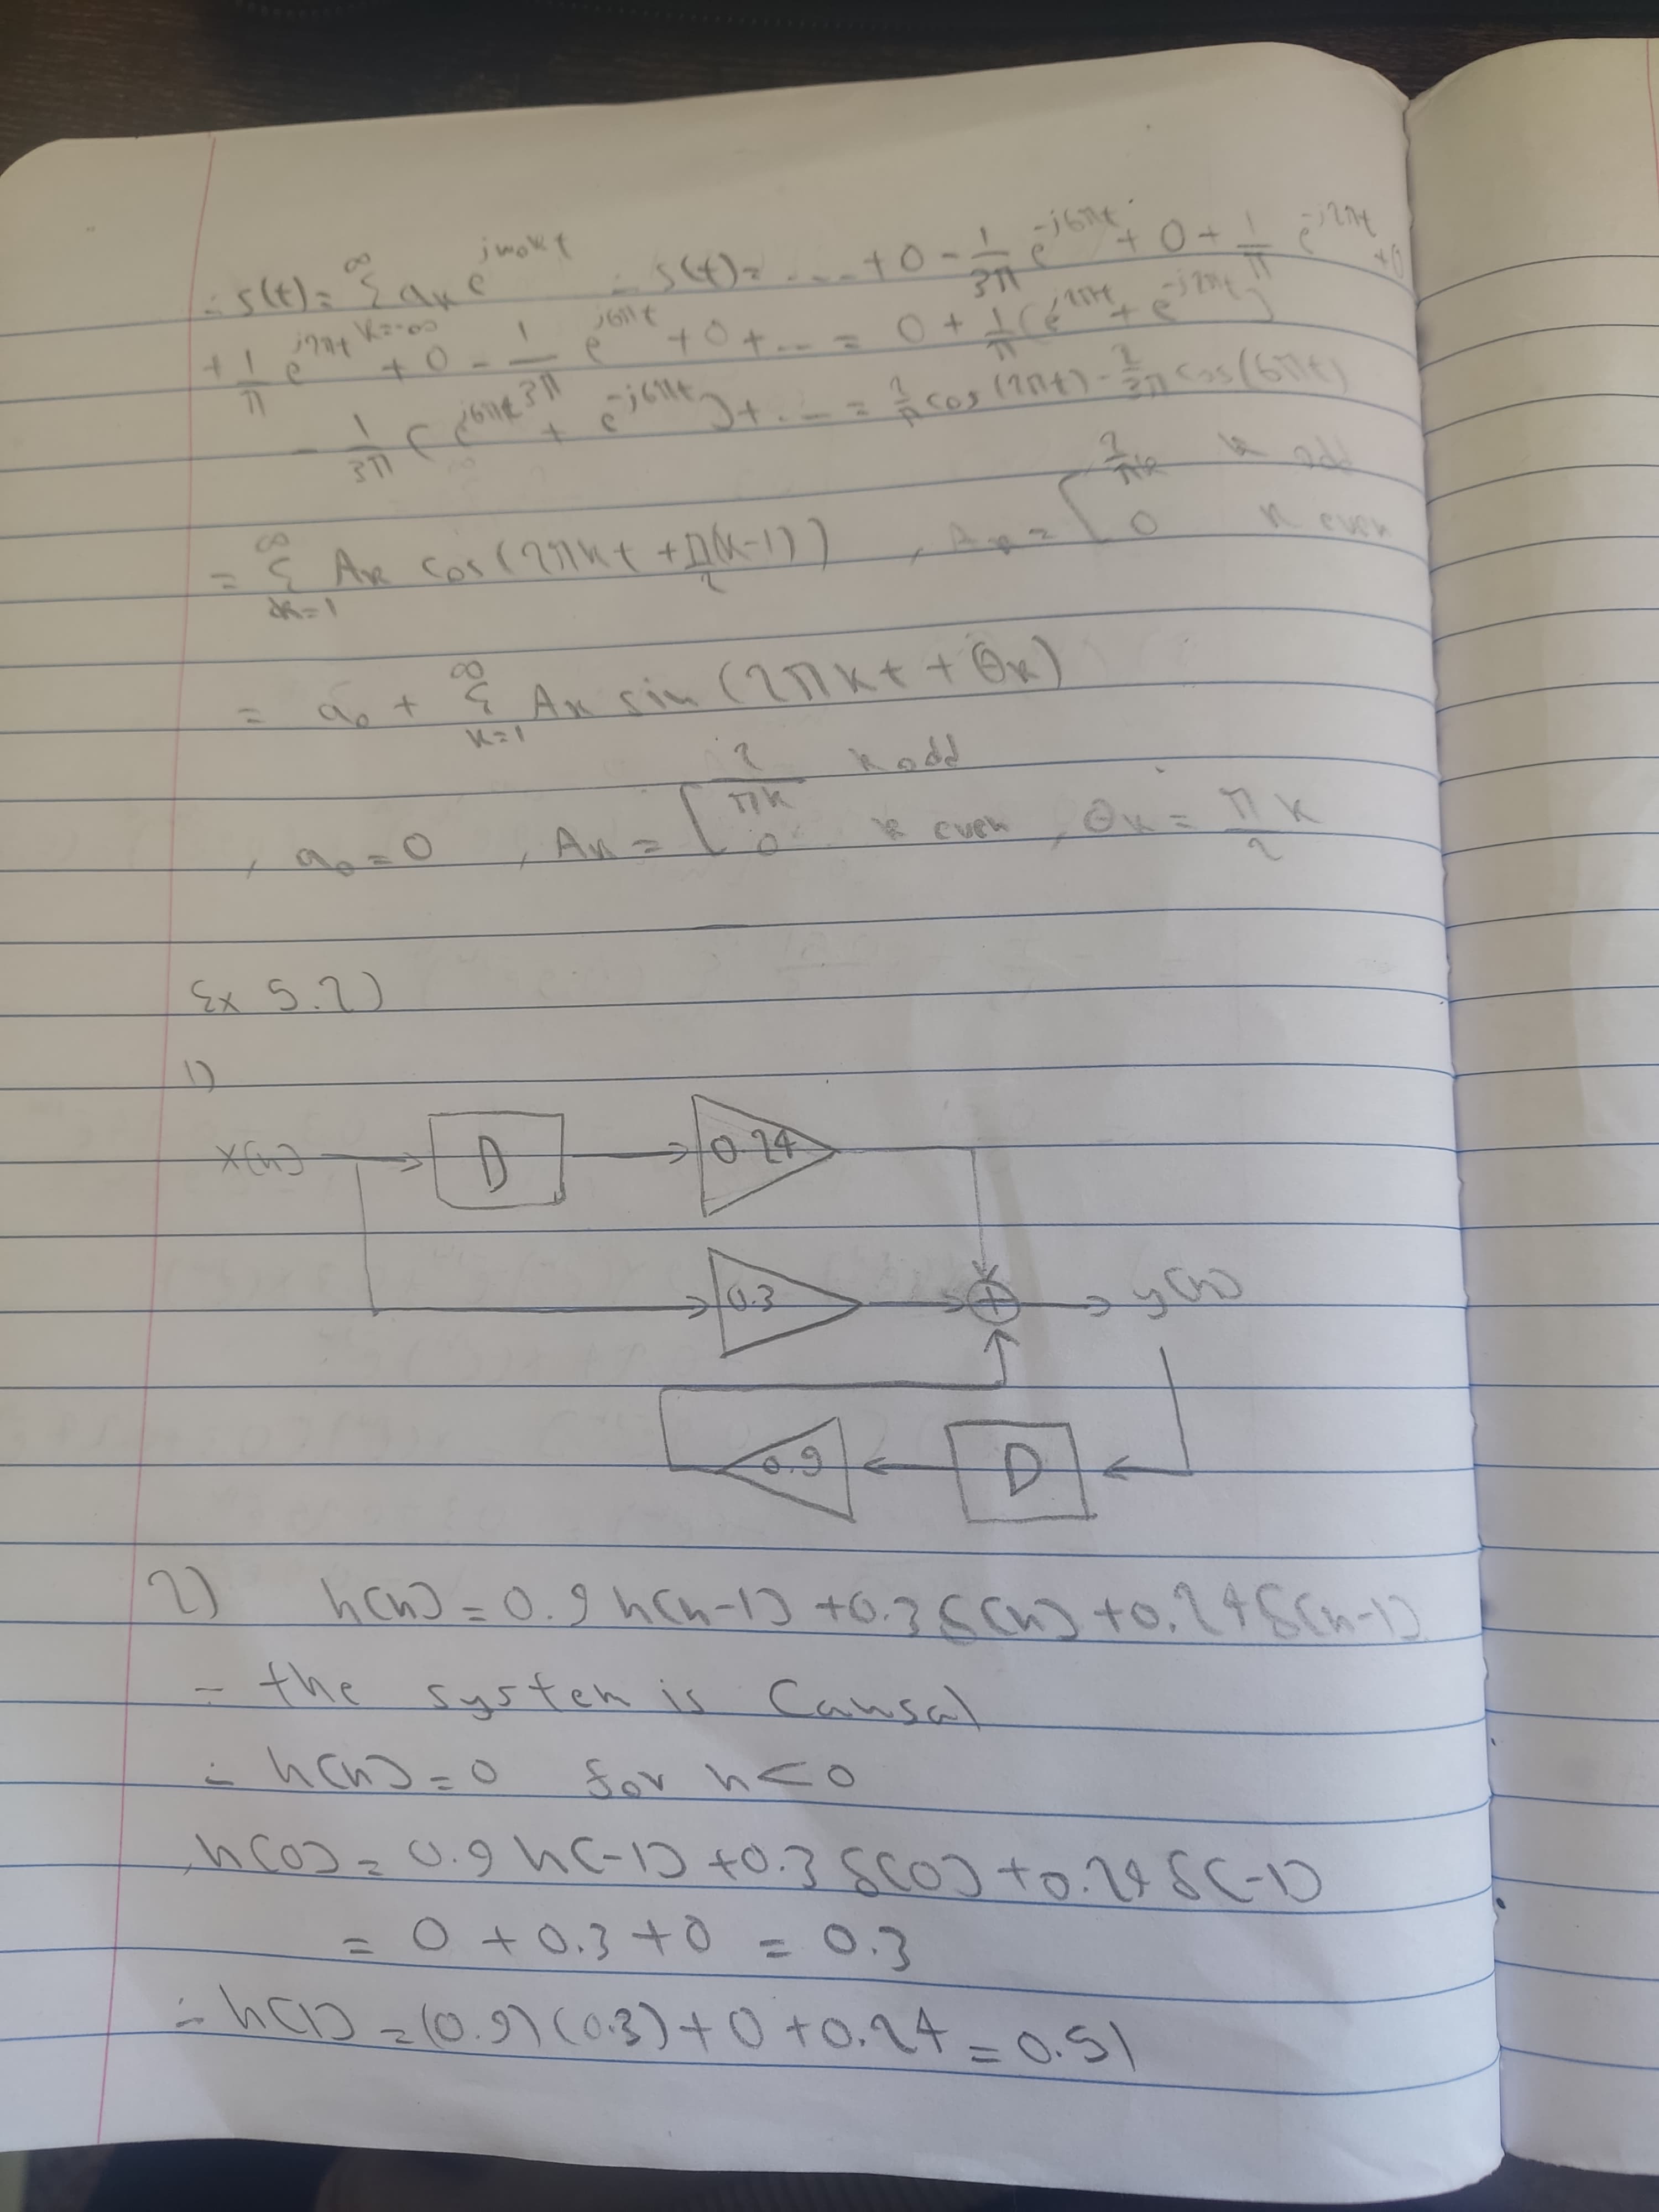 ∴ s(t) = Σ_{k=-∞}^{∞} a_k e^{jω₀kt} ∴ s(t) = .... + 0 - 1/3π e^{-j6πt} + 0 + 1/π e^{-j2πt} + 0
+ 1/π e^{j2πt} + 0 - 1/3π e^{j6πt} + 0 + ... = 0 + 1/π (e^{j2πt} + e^{-j2πt})
- 1/3π (e^{j6πt} + e^{-j6πt}) + ... = 2/π cos(2πt) - 2/3π cos(6πt)
= Σ_{k=1}^{∞} A_k cos(2πkt + π(k-1)/2) , A_k = [ 2/πk k odd
0 k even
= a₀ + Σ_{k=1}^{∞} A_k sin(2πkt + θ_k)
, a₀ = 0 , A_k = [ 2/πk k odd
0 k even , θ_k = πk/2
Ex 5.2)
1)
x(n) D 0.24
0.3 + y(n)
0.9 D
2) h(n) = 0.9 h(n-1) + 0.3 δ(n) + 0.24 δ(n-1)
∵ the system is Causal
∴ h(n) = 0 for n < 0
, h(0) = 0.9 h(-1) + 0.3 δ(0) + 0.24 δ(-1)
= 0 + 0.3 + 0 = 0.3
∴ h(1) = (0.9)(0.3) + 0 + 0.24 = 0.51